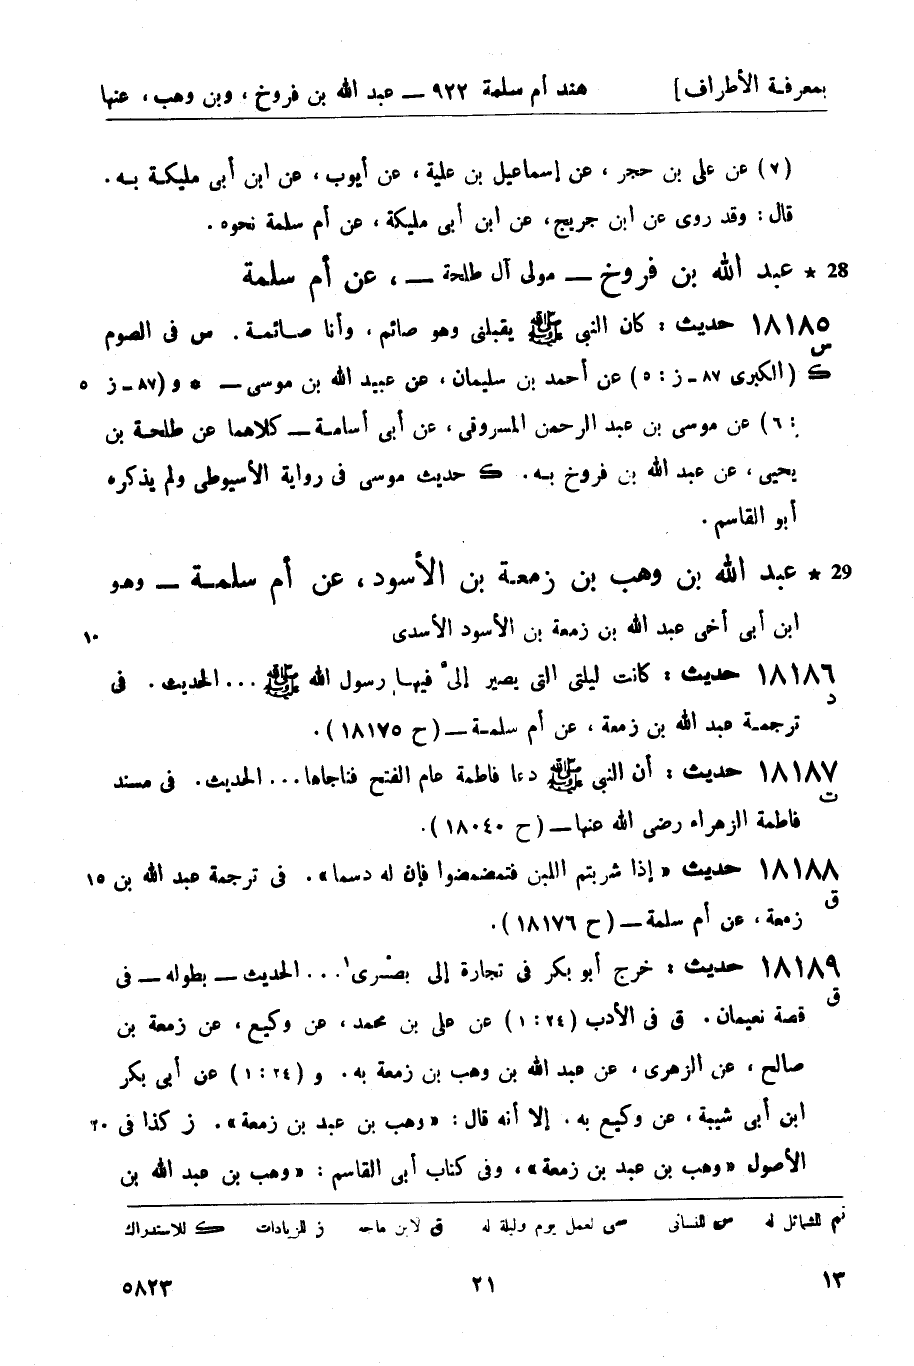 بمعرفـة الأطراف]    هند أم سلمة ٩٢٢ ــ عبد الله بن فروخ ، وبن وهب، عنها
(٧) عن على بن حجر ، عن إسماعيل بن علية ، عن أيوب ، عن ابن أبى مليكـة بـه .
قال : وقد روى عن ابن جريج، عن ابن أبى مليكة ، عن أم سلمة نحوه .
28 * عبـد الله بن فروخ ــ مولى آل طلحة ــ ، عن أم سلمة
١٨١٨٥ حديث : كان النبى ﷺ يقبلنى وهو صائم ، وأنا صـائمـة . س فى الصوم
س
ك (الكبرى ٨٧ ـ ز : ٥) عن أحمد بن سليمان، عن عبيد الله بن موسى ــ * و (٨٧ ـ ز ٥
: ٦) عن موسى بن عبد الرحمن المسروقى ، عن أبى أسامـة ــ كلاهما عن طلحـة بن
يحيى ، عن عبد الله بن فروخ بـه . ك حديث موسى فى رواية الأسيوطى ولم يذكره
أبو القاسم .
29 * عبـد الله بن وهب بن زمعـة بن الأسود ، عن أم سلمـة ــ وهـو
ابن أبى أخى عبد الله بن زمعة بن الأسود الأسدى ١٠
١٨١٨٦ حديث : كانت ليلتى التى يصير إلىّ فيهـا رسول الله ﷺ ... الحديث . فى
د
ترجمـة عبد الله بن زمعة ، عن أم سلمـة ــ (ح ١٨١٧٥) .
١٨١٨٧ حديث : أن النبى ﷺ دعا فاطمة عام الفتح فناجاها ... الحديث . فى مسند
ت
فاطمة الزهراء رضى الله عنها ــ (ح ١٨٠٤٠).
١٨١٨٨ حديث « إذا شربتم اللبن فتمضمضوا فإن له دسما» . فى ترجمة عبد الله بن ١٥
ق
زمعة ، عن أم سلمة ــ (ح ١٨١٧٦).
١٨١٨٩ حديث : خرج أبو بكر فى تجارة إلى بصْرى١ ... الحديث ــ بطوله ــ فى
ق
قصة نعيمان . ق فى الأدب (٢٤ : ١) عن على بن محمد ، عن وكيع ، عن زمعة بن
صالح ، عن الزهرى ، عن عبد الله بن وهب بن زمعة به . و (٢٤ : ١) عن أبى بكر
ابن أبى شيبة ، عن وكيع به . إلا أنه قال : «وهب بن عبد بن زمعة» . ز كذا فى ٢٠
الأصول «وهب بن عبد بن زمعة» ، وفى كتاب أبى القاسم : «وهب بن عبد الله بن
تم للشمائل له    س للنسائى    سى لعمل يوم وليلة له    ق لابن ماجه    ز للزيادات    ك للاستدراك
١٣    ٢١    ٥٨٢٣